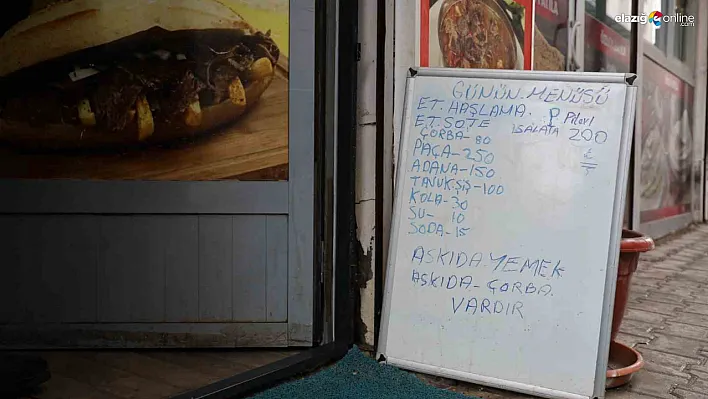 elazığonline.com
GÜNÜN MENÜSÜ
ET. HAŞLAMA. P Pilavı
ET. SOTE SALATA 200
ÇORBA-80 TL
PAÇA-250
ADANA-150
TAVUK.ŞİŞ-100
KOLA-30
SU- 10
SODA-15
ASKIDA-YEMEK
ASKIDA-ÇORBA.
VARDIR